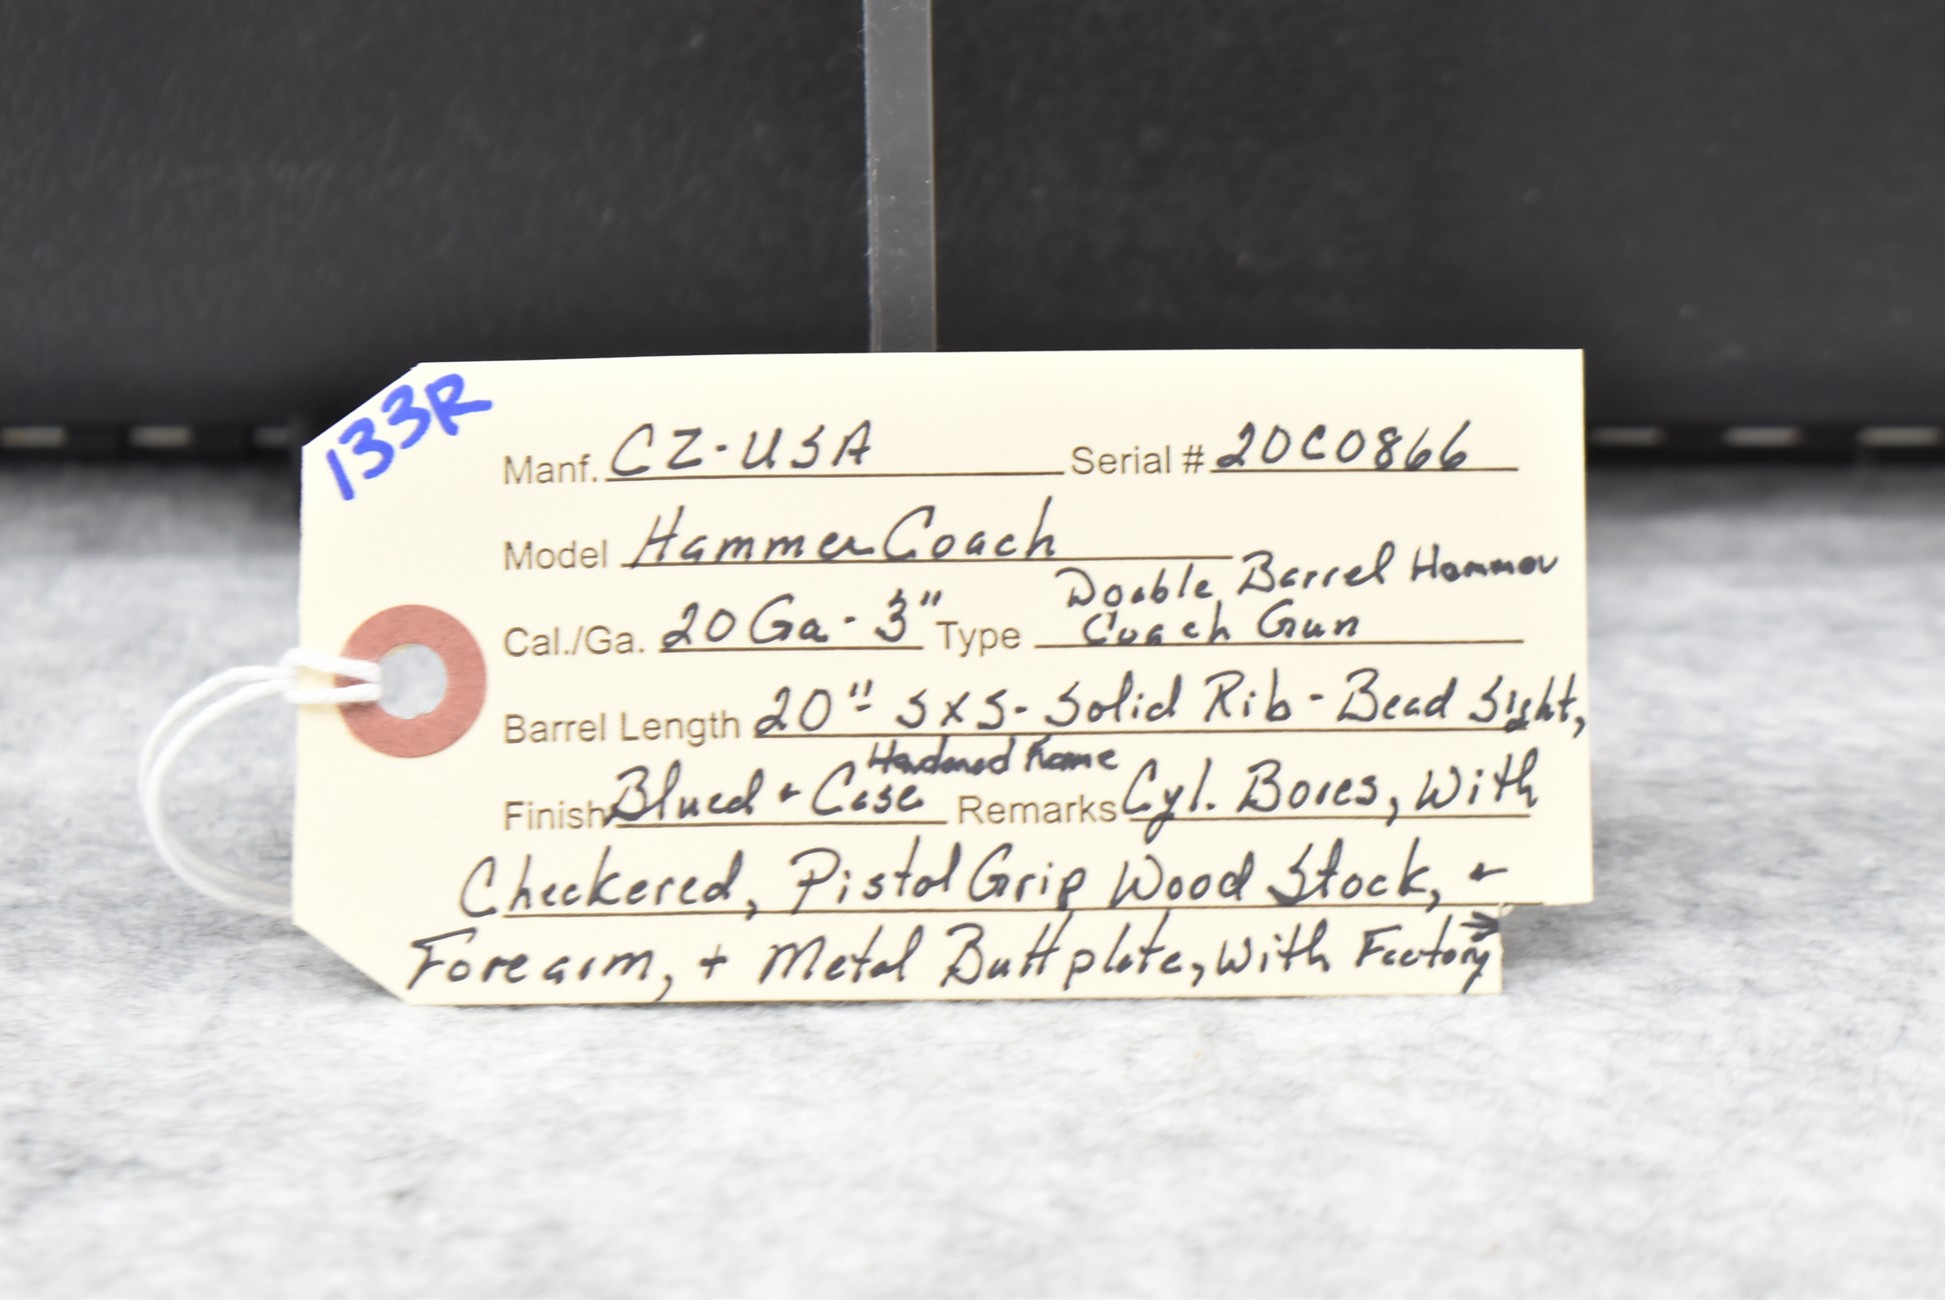 133R
Manf. CZ-USA Serial # 20C0866
Model Hammer Coach
Double Barrel Hammer
Cal./Ga. 20 Ga - 3" Type Coach Gun
Barrel Length 20" SXS - Solid Rib - Bead Sight,
Hardened Frame
Finish Blued + Case Remarks Cyl. Bores, With
Checkered, Pistol Grip Wood Stock, +
Forearm, + Metal Buttplate, With Factory →